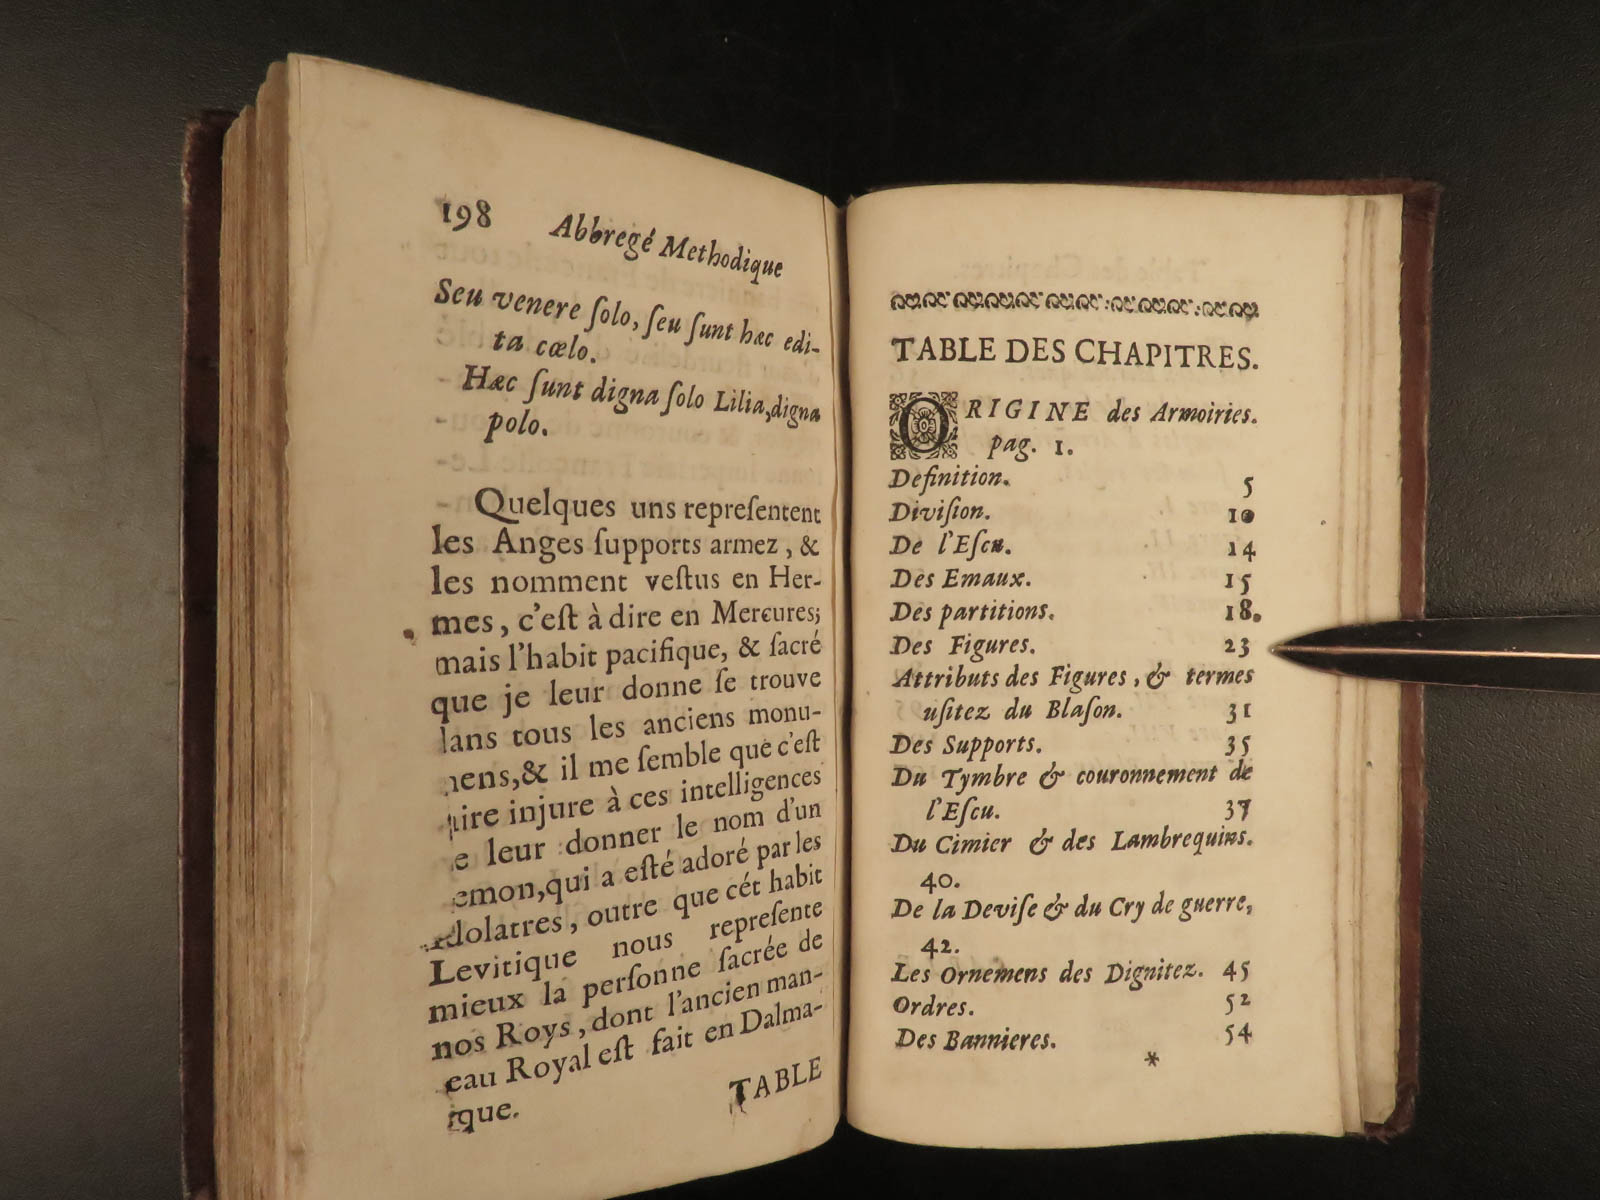 198 Abbregé Methodique
Seu venere ſolo, ſeu ſunt hæc edi-
ta cœlo.
Hæc ſunt digna ſolo Lilia, digna
polo.
Quelques uns repreſentent
les Anges ſupports armez, &
les nomment veſtus en Her-
mes, c'eſt à dire en Mercures;
mais l'habit pacifique, & ſacré
que je leur donne ſe trouve
dans tous les anciens monu-
mens, & il me ſemble que c'eſt
faire injure à ces intelligences
de leur donner le nom d'un
Demon, qui a eſté adoré par les
Idolatres, outre que cét habit
Levitique nous repreſente
mieux la perſonne ſacrée de
nos Roys, dont l'ancien man-
eau Royal eſt fait en Dalma-
ique.
TABLE
TABLE DES CHAPITRES.
ORIGINE des Armoiries.
pag. 1.
Definition. 5
Diviſion. 10
De l'Eſcu. 14
Des Emaux. 15
Des partitions. 18.
Des Figures. 23
Attributs des Figures, & termes
uſitez du Blaſon. 31
Des Supports. 35
Du Tymbre & couronnement de
l'Eſcu. 37
Du Cimier & des Lambrequins.
40.
De la Deviſe & du Cry de guerre,
42.
Les Ornemens des Dignitez. 45
Ordres. 52
Des Bannieres. 54
*